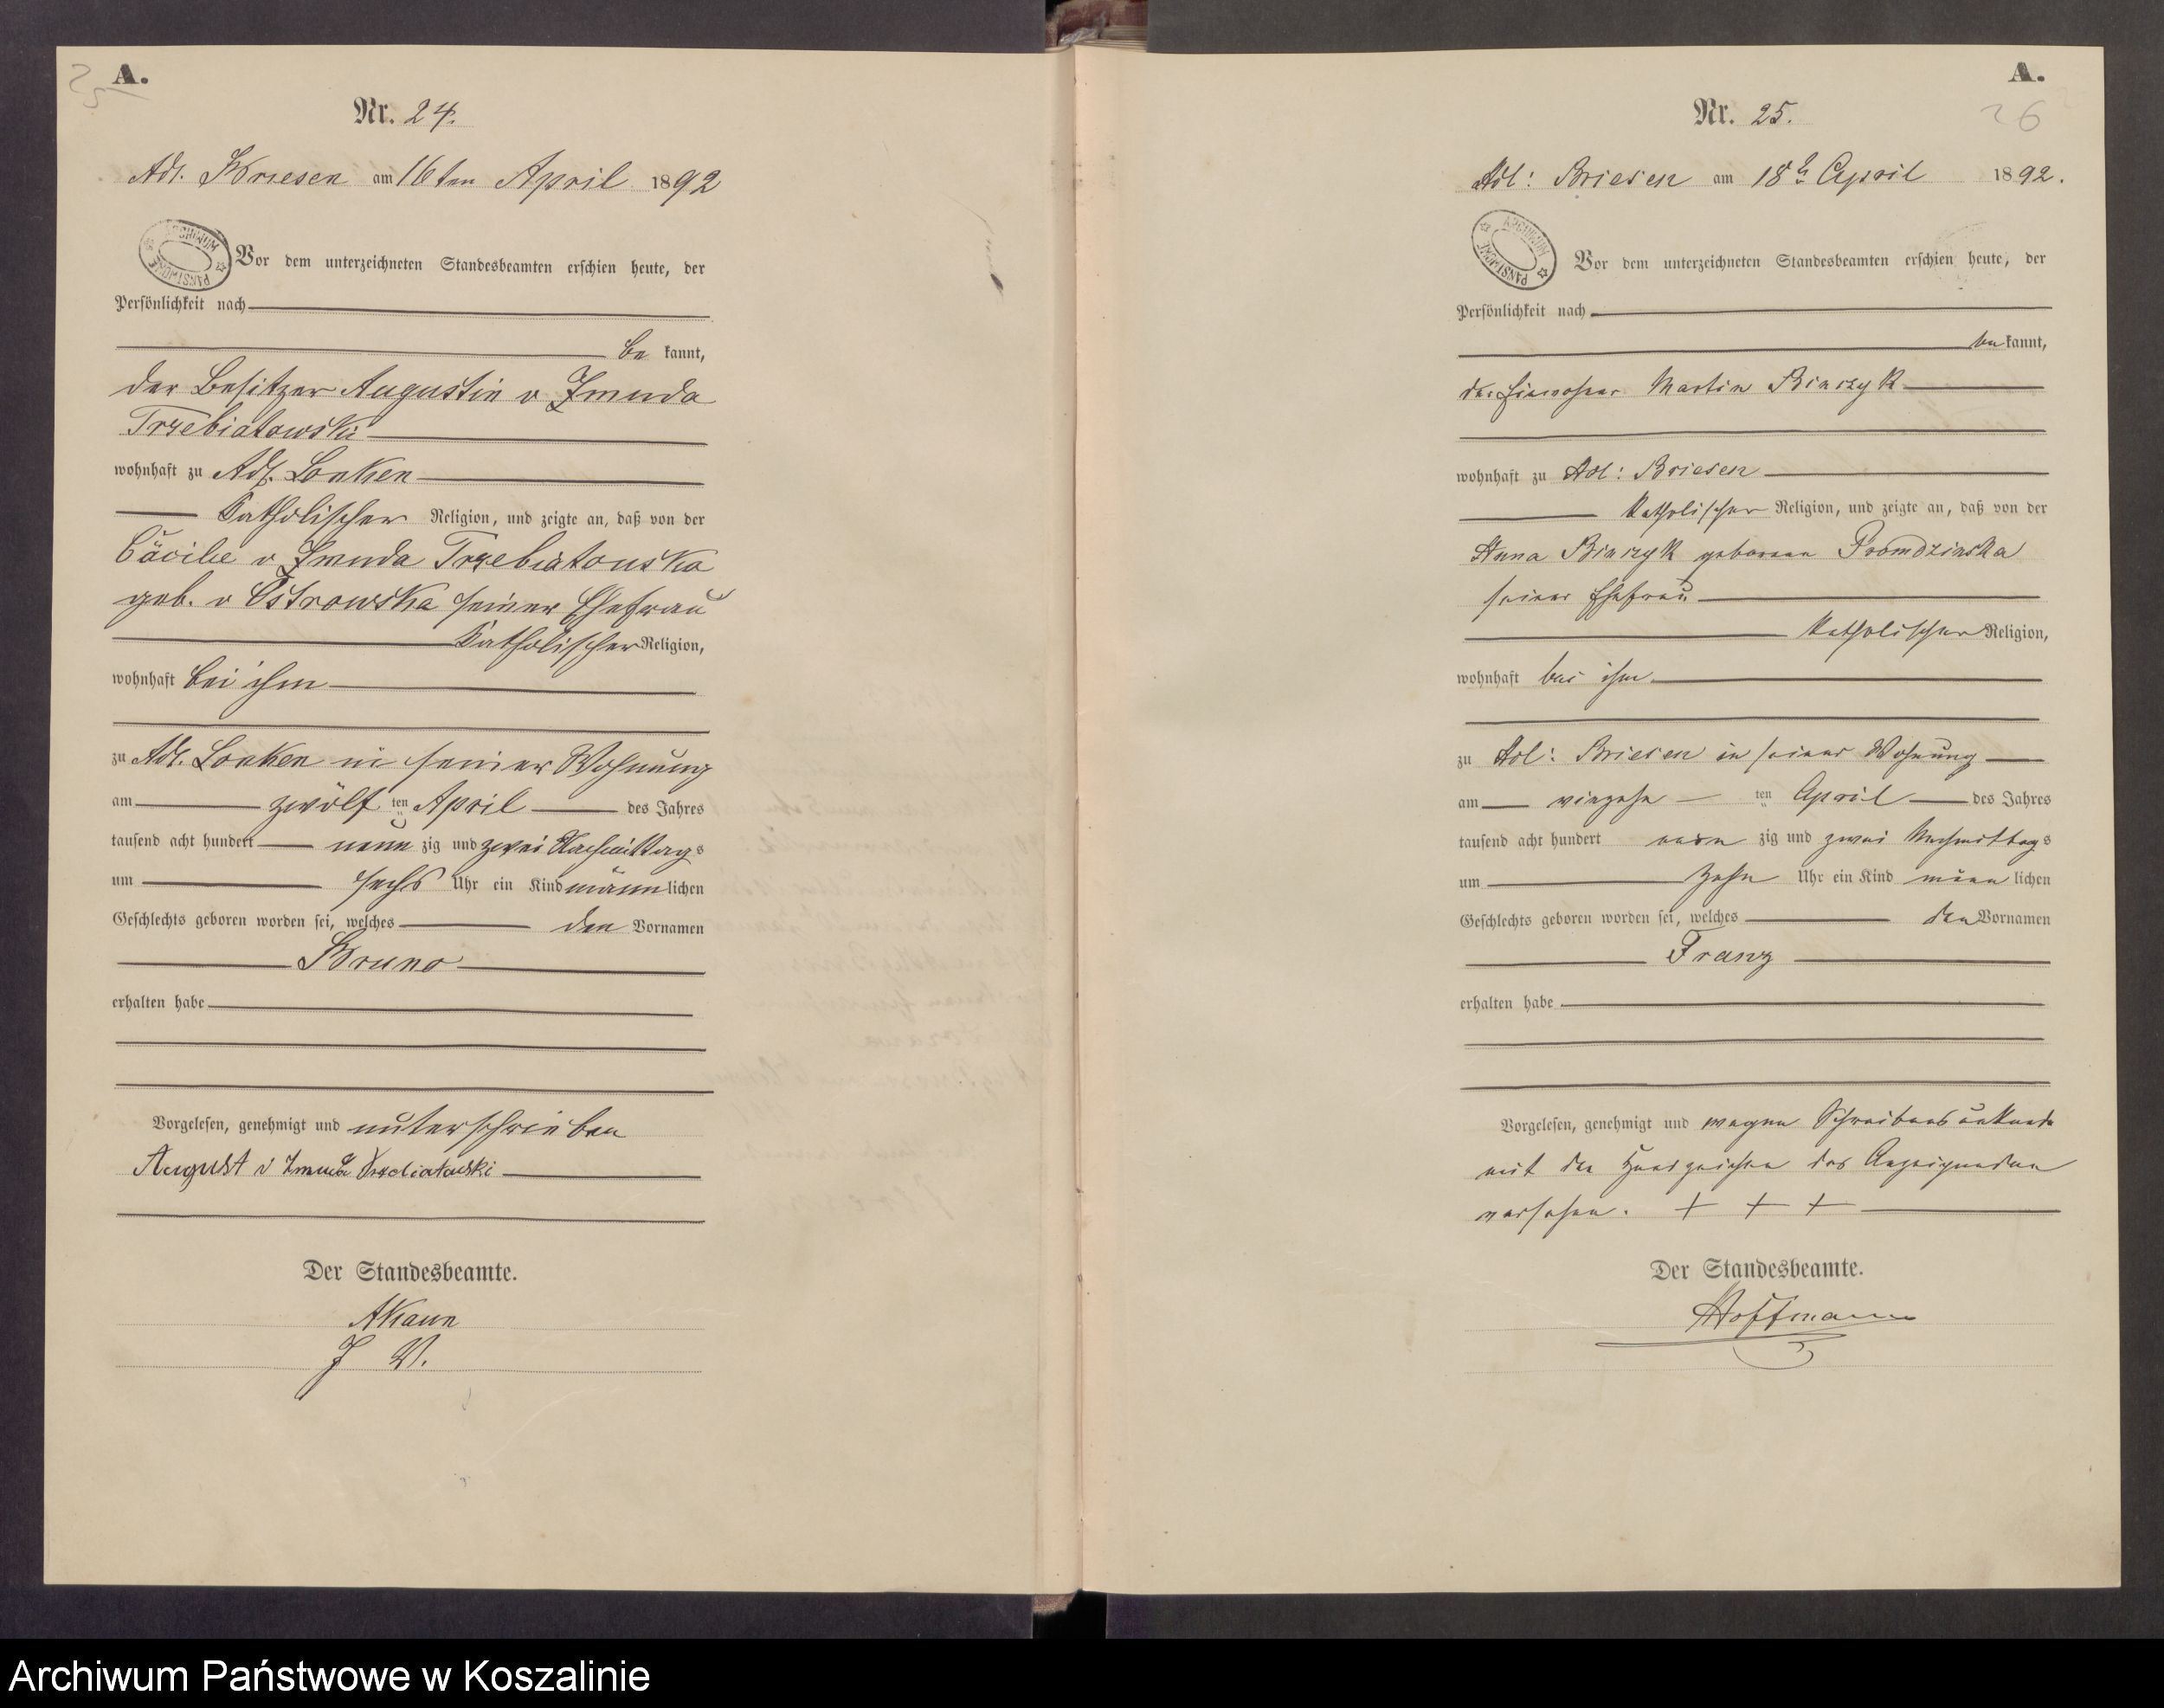 25
A.
Nr. 24.
Adl. Briesen am 16ten April 1892
ARCHIWUM PAŃSTWOWE
Vor dem unterzeichneten Standesbeamten erschien heute, der
Persönlichkeit nach
be kannt,
der Besitzer Augustin v Zmuda
Trzebiatowski
wohnhaft zu Adl. Lonken
Katholischer Religion, und zeigte an, daß von der
Cäcilie v Zmuda Trzebiatowska
geb. v Ostrowska seiner Ehefrau
Katholischer Religion,
wohnhaft bei ihm
zu Adl. Lonken in seiner Wohnung
am zwölf ten April des Jahres
tausend acht hundert neun zig und zwei Nachmittags
um sechs Uhr ein Kind männlichen
Geschlechts geboren worden sei, welches den Vornamen
Bruno
erhalten habe
Vorgelesen, genehmigt und unterschrieben
August v Zmuda Trzebiatowski
Der Standesbeamte.
J V.
A.
Nr. 25.
26
Adl: Briesen am 18t April 1892.
ARCHIWUM PAŃSTWOWE
Vor dem unterzeichneten Standesbeamten erschien heute, der
Persönlichkeit nach
be kannt,
der Einwohner Martin
wohnhaft zu Adl: Briesen
Katholischer Religion, und zeigte an, daß von der
Anna geborene
seiner Ehefrau
Katholischer Religion,
wohnhaft bei ihm
zu Adl: Briesen in seiner Wohnung
am vierzehn ten April des Jahres
tausend acht hundert neun zig und zwei Nachmittags
um zehn Uhr ein Kind männlichen
Geschlechts geboren worden sei, welches den Vornamen
Franz
erhalten habe
Vorgelesen, genehmigt und wegen Schreibensunkunde
mit den Handzeichen des Anzeigenden
versehen. + + +
Der Standesbeamte.
Hoffmann
Archiwum Państwowe w Koszalinie